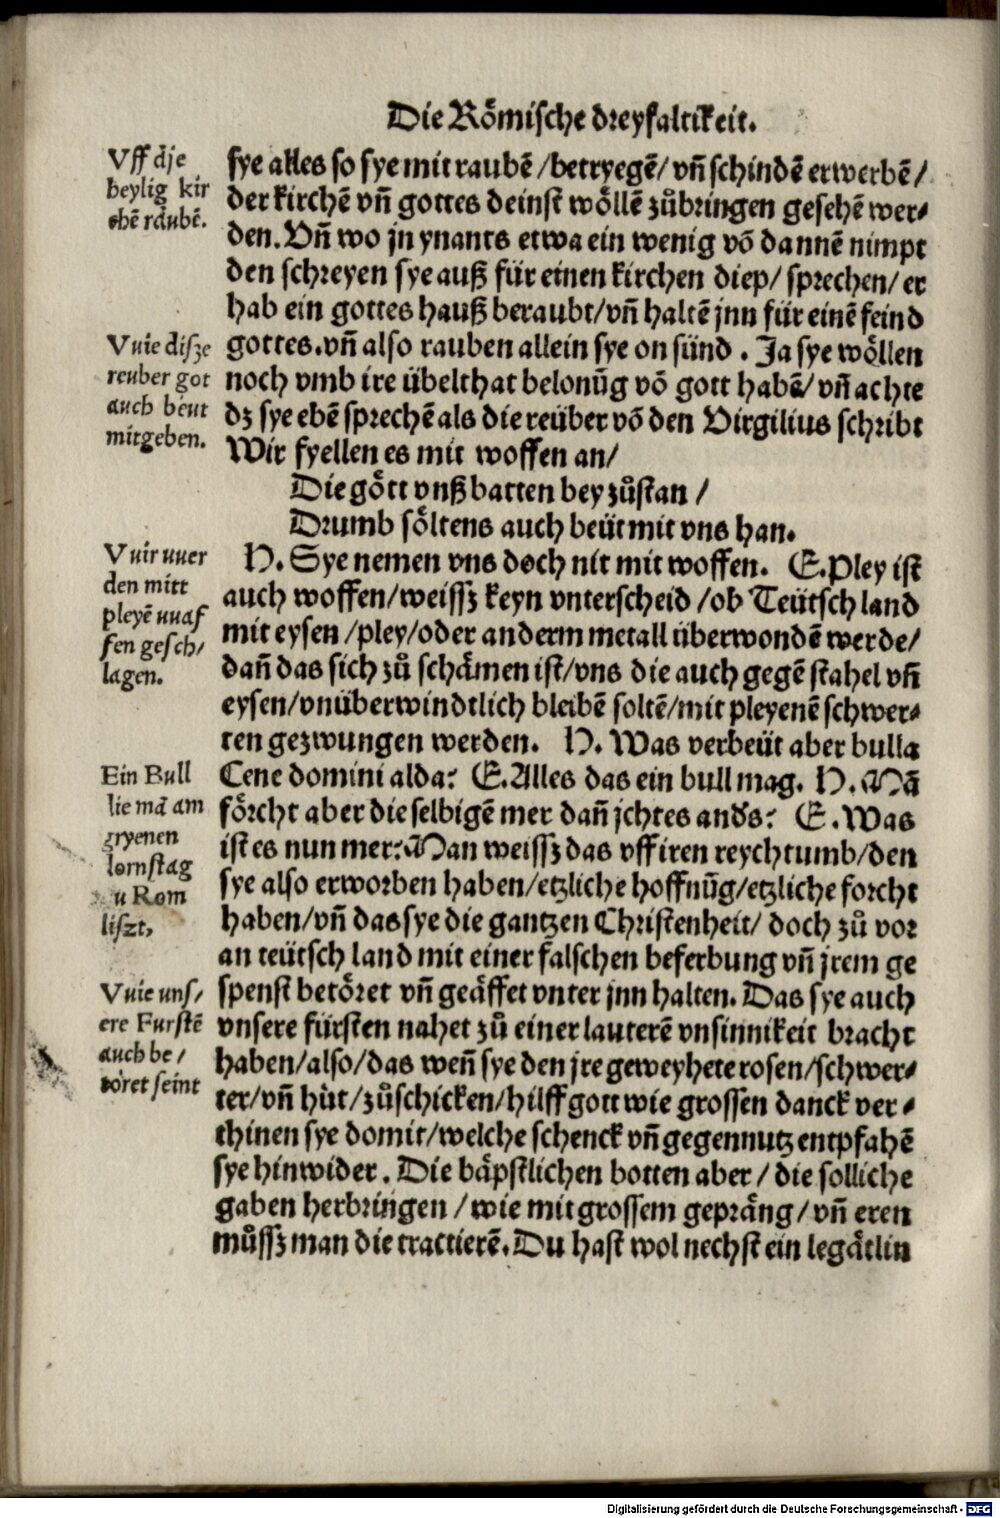 Die Rőmische dreyfaltikeit.
Vff die
heylig kir
chē raubē.
sye alles so sye mit raubē /betryegē/ vn̄ schindē erwerbē /
der kirchē vn̄ gottes deinst wőllē zůbringen gesehē wer⸗
den. Vn̄ wo jn ynants etwa ein wenig vō dannē nimpt
den schreyen sye auß für einen kirchen diep/ sprechen/ er
hab ein gottes hauß beraubt/ vn̄ haltē jnn für einē feind
Vuie disze
reuber got
auch beut
mitgeben.
gottes. vn̄ also rauben allein sye on sünd . Ja sye wőllen
noch vmb ire übelthat belonūg vō gott habē/ vn̄ achte
dz sye ebē sprechē als die reüber vō den Virgilius schribt
Wir fyellen es mit woffen an/
Die gőtt vnß hatten bey zůstan /
Drumb sőltens auch beüt mit vns han.
Vuir vuer
den mitt
pleyē vuaf
fen gesch/
lagen.
H. Sye nemen vns doch nit mit woffen. E. Pley ist
auch woffen/weissz keyn vnterscheid /ob Teütsch land
mit eysen /pley/oder anderm metall überwondē werde/
dan̄ das sich zů schämen ist/vns die auch gegē stahel vn̄
eysen/vnüberwindtlich bleibē soltē/mit pleyenē schwer⸗
ten gezwungen werden. H. Was verbeüt aber bulla
Ein Bull
lie mā am
gryenen
dornstag
zu Rom
liszt,
Cene domini alda? E. Alles das ein bull mag. H. Mā
főrcht aber die selbigē mer dan̄ jchtes anďs? E . Was
ist es nun mer? Man weissz das vff iren reychtumb/den
sye also erworben haben/etzliche hoffnūg/etzliche forcht
haben/vn̄ das sye die gantzen Christenheit/ doch zů vor
an teütsch land mit einer falschen beferbung vn̄ jrem ge
Vuie vns/
ere Furstē
auch be/
toret seint
spenst betőret vn̄ geäffet vnter jnn halten. Das sye auch
vnsere fürsten nahet zů einer lauterē vnsinnikeit bracht
haben/also/das wen̄ sye den jre geweyhete rosen/schwer⸗
ter/vn̄ hüt/zůschicken/hilff gott wie grossen danck ver⸗
thinen sye domit/welche schenck vn̄ gegennutz entpfahē
sye hinwider . Die bäpstlichen botten aber / die solliche
gaben herbringen /wie mit grossem gepräng/ vn̄ eren
můssz man die tractierē. Du hast wol nechst ein legätlin
Digitalisierung gefördert durch die Deutsche Forschungsgemeinschaft - DFG